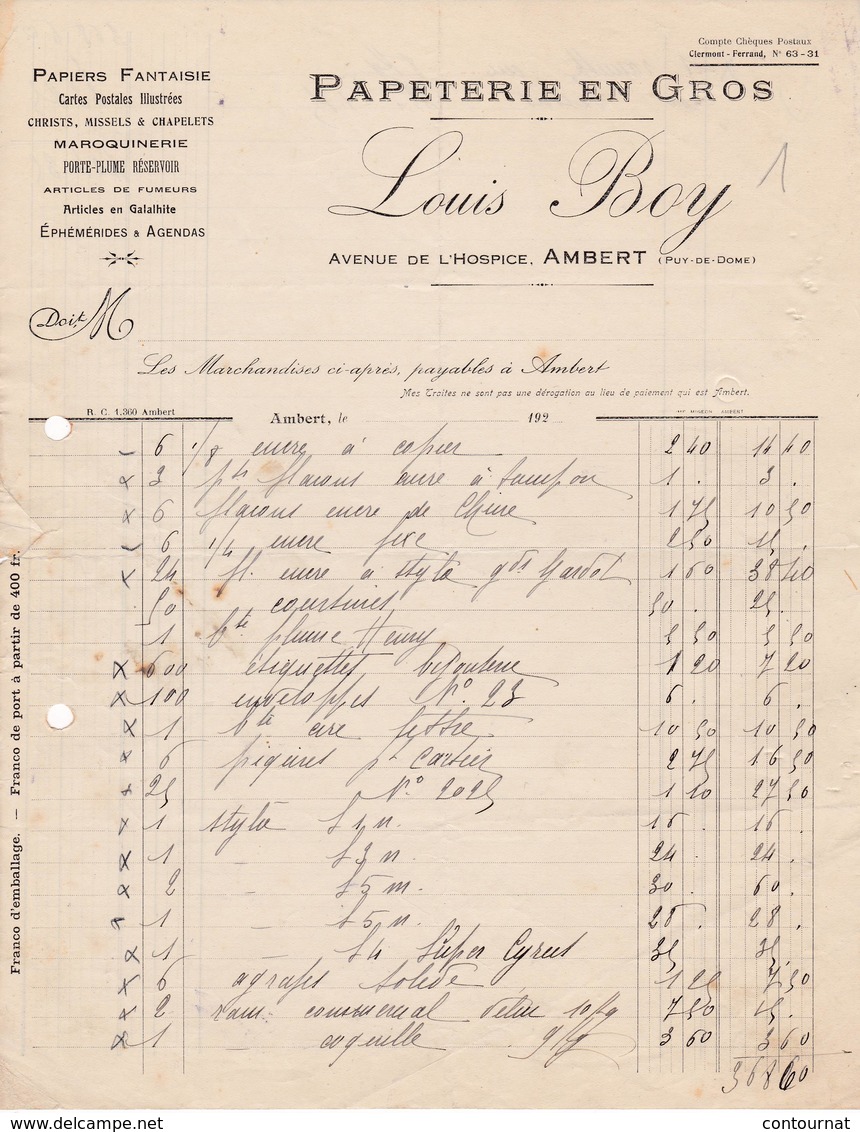 Compte Chèques Postaux
Clermont-Ferrand, N° 63-31
PAPIERS FANTAISIE
Cartes Postales Illustrées
CHRISTS, MISSELS & CHAPELETS
MAROQUINERIE
PORTE-PLUME RÉSERVOIR
ARTICLES DE FUMEURS
Articles en Galalhite
ÉPHÉMÉRIDES & AGENDAS
PAPETERIE EN GROS
Louis Boy
1
AVENUE DE L'HOSPICE, AMBERT (PUY-DE-DOME)
Doit M
Les Marchandises ci-après, payables à Ambert
Mes Traites ne sont pas une dérogation au lieu de paiement qui est Ambert.
R. C. 1.360 Ambert
Ambert, le 192
IMP. MIGEON AMBERT
6 1/8 encre à copier 2 40 14 40
3 pts flacons encre à tampon 1 . 3 .
6 flacons encre de Chine 1 75 10 50
6 1/4 encre fixe 2 50 15 .
24 fl. encre à stylo gds Gardot 1 60 38 40
50 50 . 25 .
1 bte plume Henry 5 50 5 50
600 étiquettes bijouterie 1 20 7 20
100 enveloppes N° 23 6 . 6 .
1 bte cire lettre 10 50 10 50
6 2 75 16 50
25 N° 2025 1 10 27 50
1 stylo 1 n. 16 . 16 .
1 – 3 n. 24 . 24 .
2 – 5 m. 30 . 60 .
1 – 5 n. 28 . 28 .
1 – 4 Super Cyrus 35 35 .
6 agrafes solide 1 25 7 50
2 ram. commercial vélin 10 kg 7 50 15 .
1 coquille 9 kg 3 60 3 60
368 60
Franco d'emballage. — Franco de port à partir de 400 fr.
www.delcampe.net
contournat